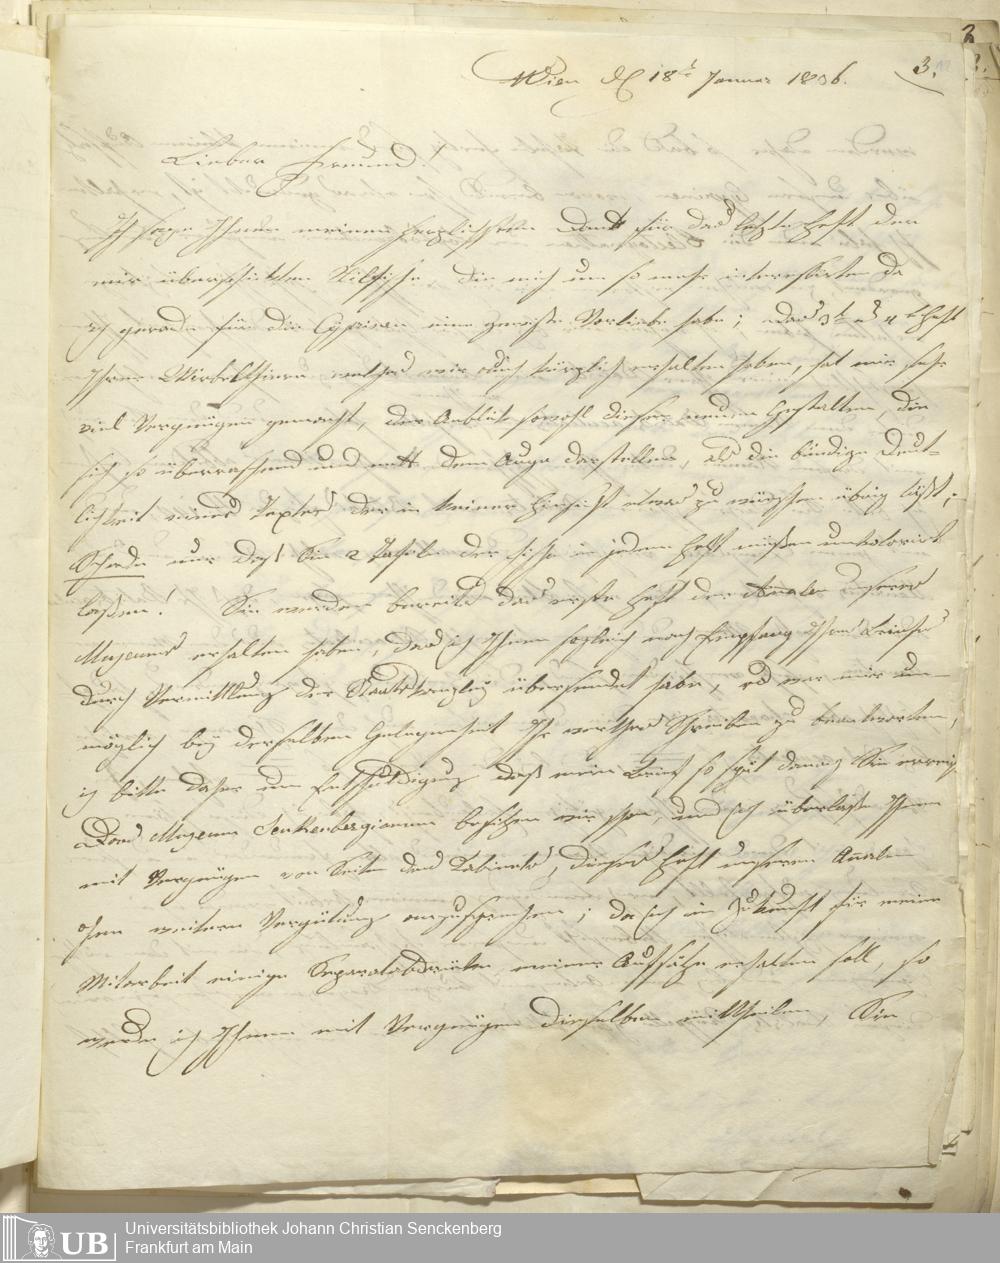 Wien d 18t Januar 1836.
3.
Lieber Freund!
Ich sage Ihnen meinen herzlichsten Dank für das letzte Heft der
mir überschickten Nilfische, die mich um so mehr interessirten da
ich gerade für die Cyprinen eine gewisse Vorliebe habe; das 3t u 4t Heft
Ihrer Wirbelthiere welches wir auch kürzlich erhalten haben, hat mir sehr
viel Vergnügen gemacht, der Anblick sowohl dieser neuen Gestalten, die
sich so überraschend und nett dem Auge darstellen, als die bündige Deut-
lichkeit eines Textes der in keiner Hinsicht etwas zu wünschen übrig läßt;
Schade nur daß Sie 2 Tafeln der Fische in jedem Heft müßen unkolorirt
laßen! Sie werden bereits das erste Heft der Annalen unseres
Museums erhalten haben, das ich Ihnen sogleich nach Empfang Briefes
durch Vermittlung der Staatskanzley übersendet habe, es war mir un-
möglich bey derselben Gelegenheit Ihr werthes Schreiben zu beantworten,
ich bitte daher um Entschuldigung daß mein Brief so spät Sie erreicht
Das Museum Senkenbergianum besitzen wir schon, und ich überlaße Ihnen
mit Vergnügen von Seite des Kabinets, dieses Heft unserer Annalen
ohne weitere Vergütung anzusprechen; da ich in Zukunft für meine
Mitarbeit einige Separatabdrücke meiner Aufsätze erhalten soll, so
werde ich Ihnen mit Vergnügen dieselben mittheilen, Sie
UB
Universitätsbibliothek Johann Christian Senckenberg
Frankfurt am Main